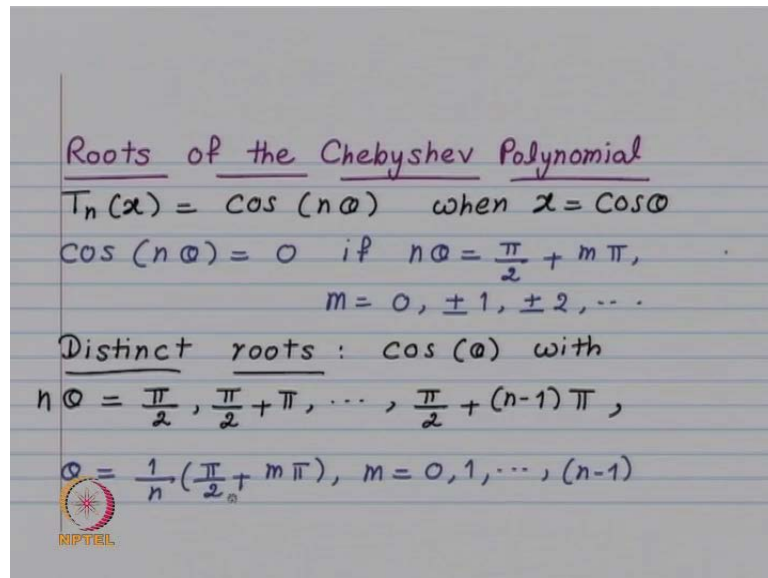 Roots of the Chebyshev Polynomial
Tn(x) = cos (nθ) when x = cosθ
cos (nθ) = 0 if nθ = π/2 + mπ,
m = 0, ±1, ±2, ...
Distinct roots : cos (θ) with
nθ = π/2, π/2 + π, ..., π/2 + (n-1)π,
θ = 1/n (π/2 + mπ), m = 0, 1, ..., (n-1)
NPTEL